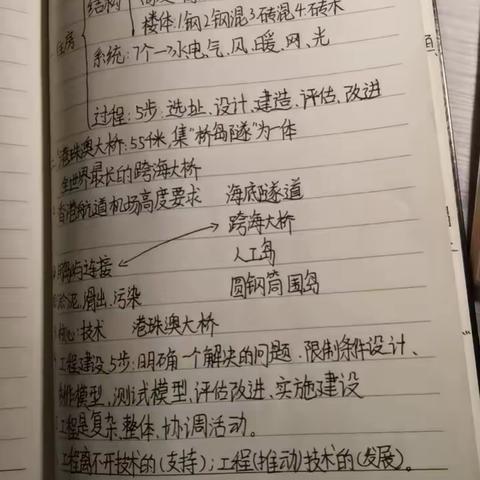 结构
楼体:1钢2钢混3砖混4.砖木
住房
系统:7个→水、电、气、风、暖、网、光
过程:5步:选址、设计、建造、评估、改进
港珠澳大桥:55千米 集"桥岛隧"为一体
全世界最长的跨海大桥
香港航道机场高度要求 海底隧道
跨海大桥
连接
人工岛
泥、滑出、污染 圆钢筒围岛
核心:技术 港珠澳大桥
工程建设5步:明确一个解决的问题、限制条件设计、
制作模型,测试模型,评估改进、实施建设
工程是复杂、整体、协调活动。
工程离不开技术的(支持);工程(推动)技术的(发展)。